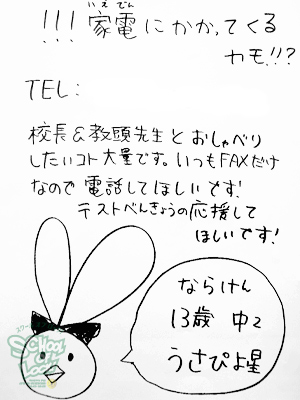 !!!家電にかかってくる
いえでん
カモ!!?
TEL:
校長&教頭先生とおしゃべり
したいコト大量です。いつもFAXだけ
なので電話してほしいです!
テストべんきょうの応援して
ほしいです!
ならけん
13歳 中2
うさぴよ星
SCHOOL
OF
LOCK!